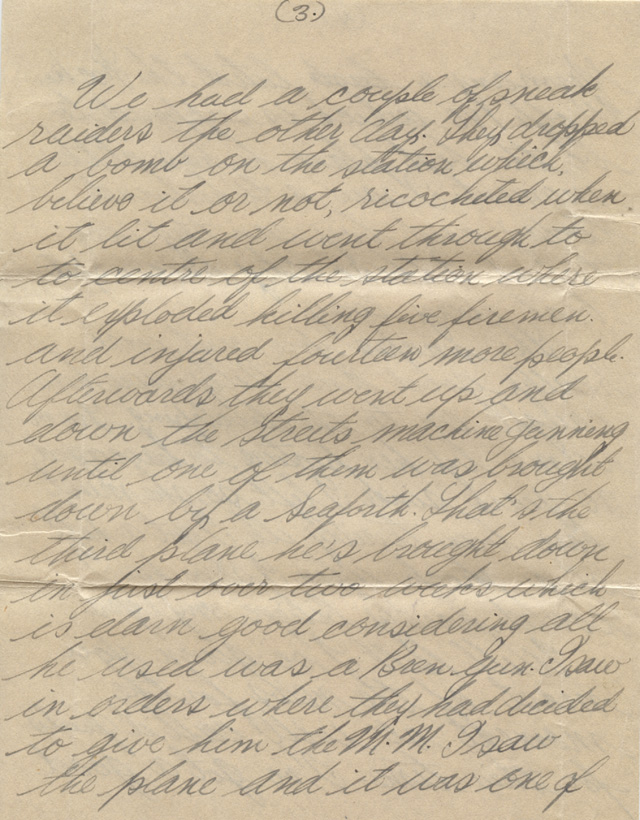 (3.)
We had a couple of sneak
raiders the other day. They dropped
a bomb on the station which,
believe it or not, ricocheted when
it lit and went through to
to centre of the station where
it exploded killing five firemen.
and injured fourteen more people.
Afterwards they went up and
down the streets machine gunning
until one of them was brought
down by a Seaforth. That's the
third plane he's brought down
in just over two weeks which
is darn good considering all
he used was a Bren Gun. I saw
in orders where they had decided
to give him the M.M. I saw
the plane and it was one of